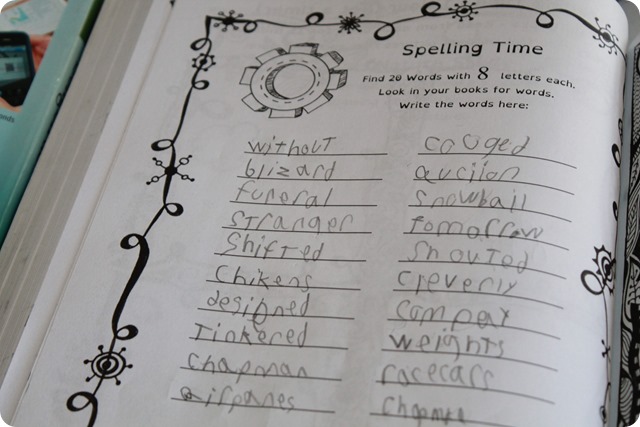 Spelling Time
Find 20 Words with 8 letters each.
Look in your books for words.
Write the words here:
without
blizard
funeral
stranger
Shifted
Chikens
designed
Tinkered
Chapman
airpanes
couged
auction
snowball
Tomorrow
shouted
cleverly
weights
racecars